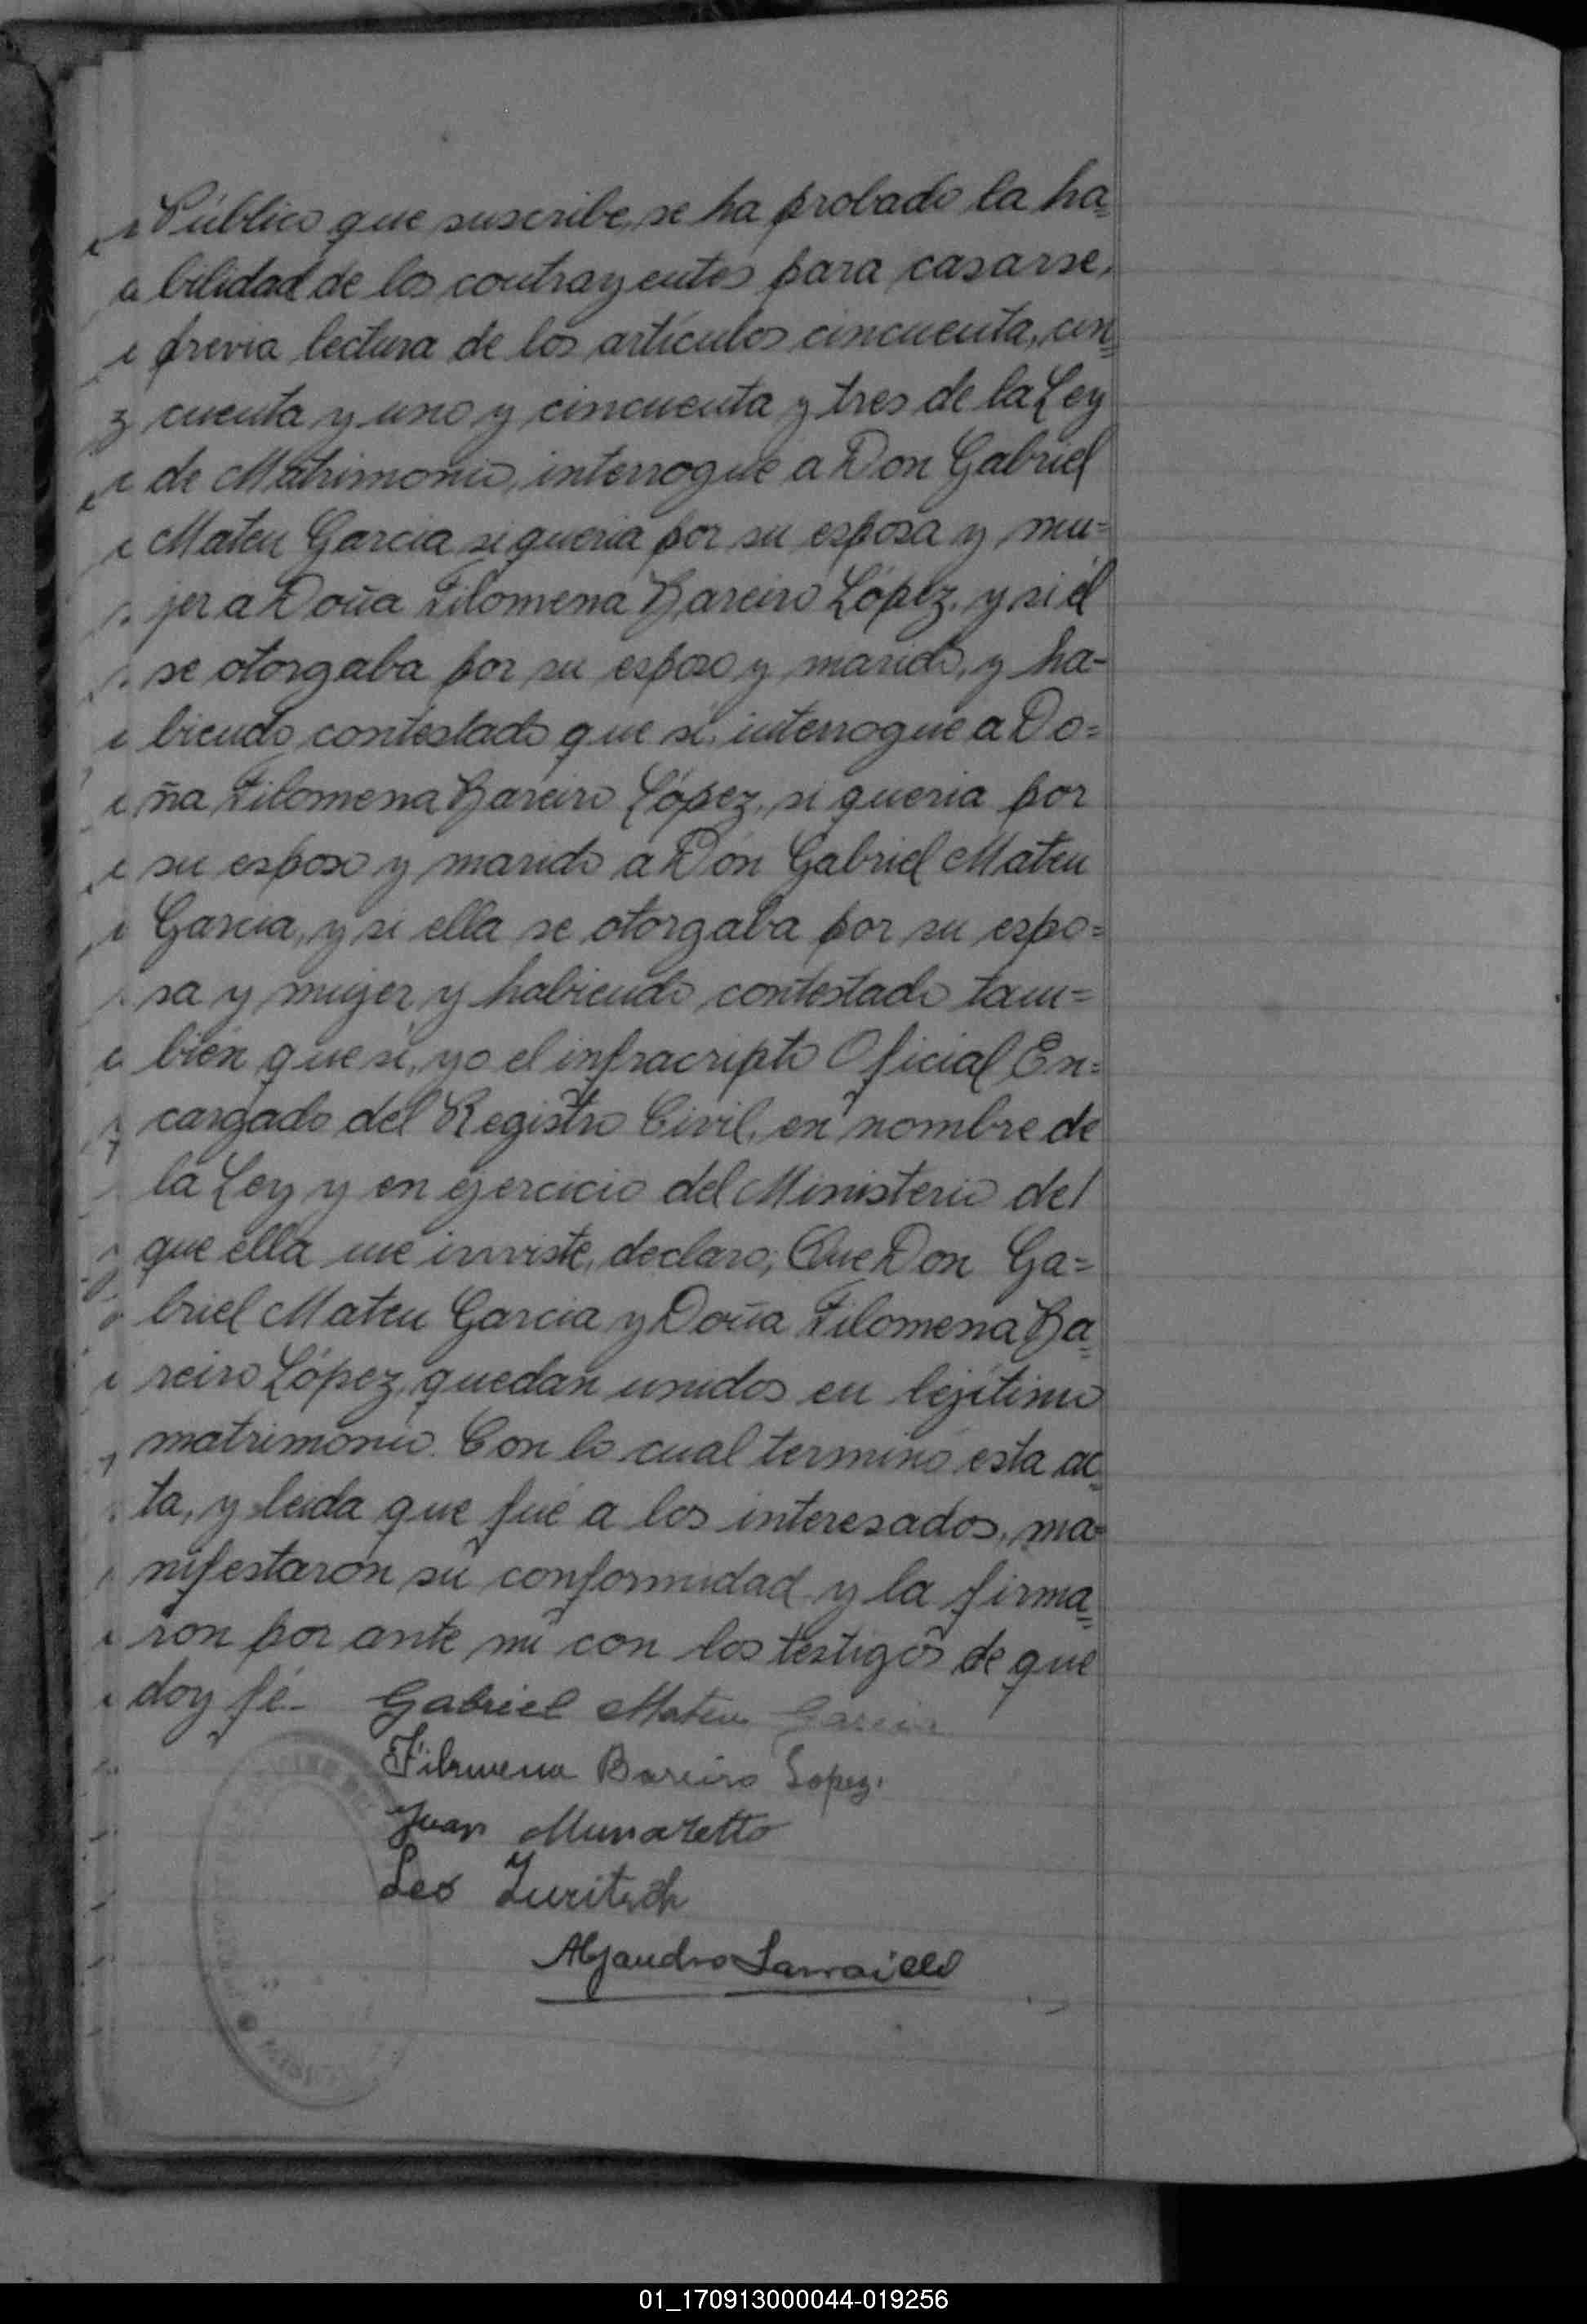 Público que suscribe, se ha probado la ha=
bilidad de los contrayentes para casarse,
previa lectura de los artículos cincuenta, cin=
cuenta y uno y cincuenta y tres de la Ley
de Matrimonio, interrogué a Don Gabriel
Mateu Garcia si queria por su esposa y mu=
jer a Doña Filomena Bareiro López, y si él
se otorgaba por su esposo y marido, y ha-
biendo contestado que si, interrogué a Do=
ña Filomena Bareiro López, si queria por
su esposo y marido a Don Gabriel Mateu
Garcia, y si ella se otorgaba por su espo=
sa y mujer y habiendo contestado tam=
bién que si, yo el infracripto Oficial En=
cargado del Registro Civil, en nombre de
la Ley y en ejercicio del Ministerio del
que ella me inviste, declaro; Que Don Ga=
briel Mateu Garcia y Doña Filomena Ba=
reiro López, quedan unidos en lejítimo
matrimonio. Con lo cual terminó esta ac=
ta, y leida que fué a los interesados, ma=
nifestaron su conformidad y la firma=
ron por ante mi con los testigos de que
doy fé- Gabriel Mateu Garcia
Filomena Bareiro Lopez.
Juan Munaretto
Leo
Alejandro
01_170913000044-019256